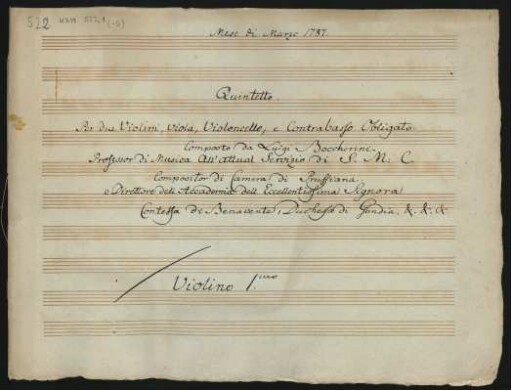 522
Mese di Marzo 1787.
Quintetto
Per due Violini, Viola, Violoncello, e Contrabasso Obligato
Composto da Luigi Boccherini
Professor di Musica all'attual Servizio di S. M. C.
Compositor di Camera di Prussiana
e Direttore dell'Accademia dell'Eccellentissima Signora
Contessa di Benavente, Duchessa di Gandia, &. &. &
Violino 1.mo